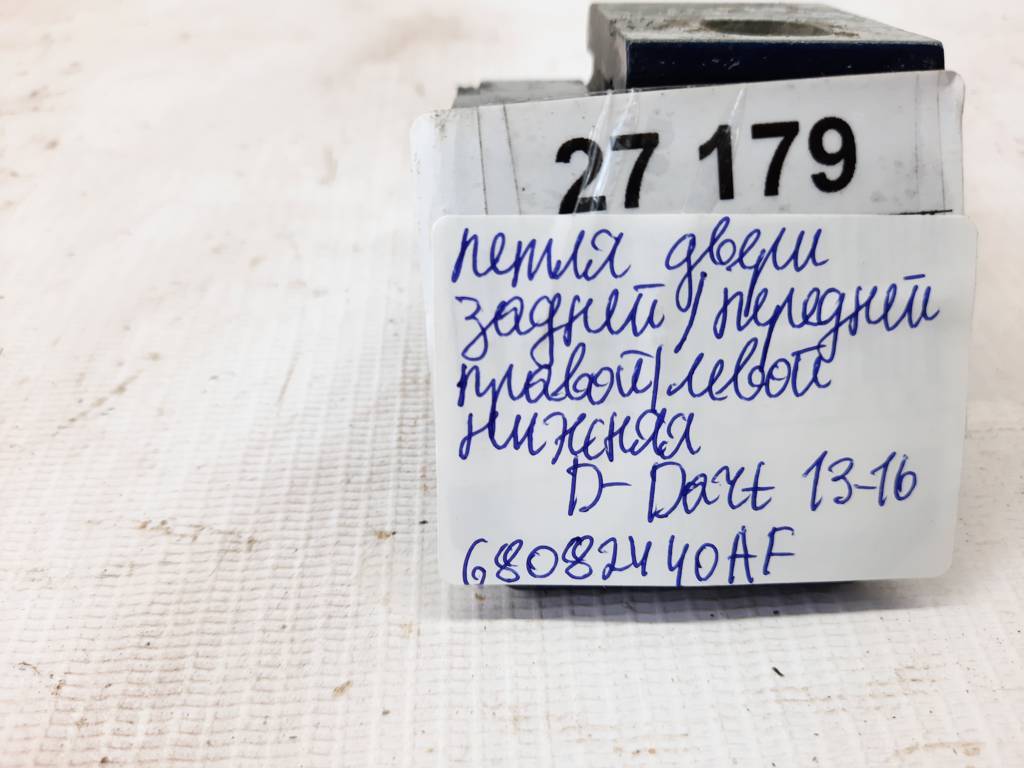 27 179
петля двери
задней/передней
правой/левой
нижняя
D- Dart 13-16
68082440AF